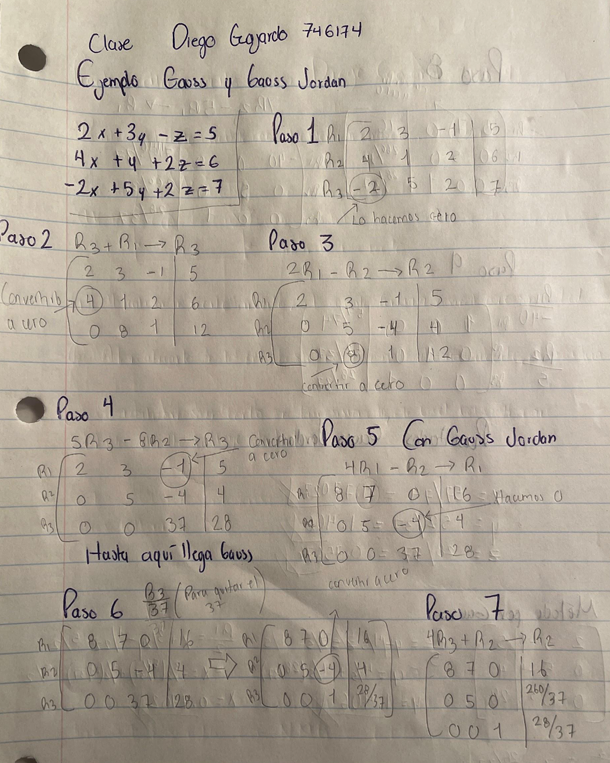 Clase Diego Gajardo 746174
Ejemplo Gauss y Gauss Jordan
2x +3y - z = 5
4x + y +2z = 6
-2x +5y +2z = 7
Paso 1
R1 2 3 -1 5
R2 4 1 2 6
R3 -2 5 2 7
Lo hacemos cero
Paso 2 R3 + R1 → R3
2 3 -1 5
4 1 2 6
0 8 1 12
Convertirlo
a cero
Paso 3
2R1 - R2 → R2
R1 2 3 -1 5
R2 0 5 -4 4
R3 0 8 1 12
convertir a cero
Paso 4
5R3 - 8R2 → R3
a cero
R1 2 3 -1 5
R2 0 5 -4 4
R3 0 0 37 28
Hasta aquí llega Gauss
Paso 5 Con Gauss Jordan
4R1 - R2 → R1
8 7 0 16
0 5 -4 4
R3 0 0 37 28
Hacemos 0
Paso 6 R3/37 (Para quitar el
37)
R1 8 7 0 16
R2 0 5 -4 4
R3 0 0 37 28
⇨
R1 8 7 0 16
R2 0 5 -4 4
R3 0 0 1 28/37
convertir a cero
Paso 7
4R3 + R2 → R2
8 7 0 16
0 5 0 260/37
0 0 1 28/37